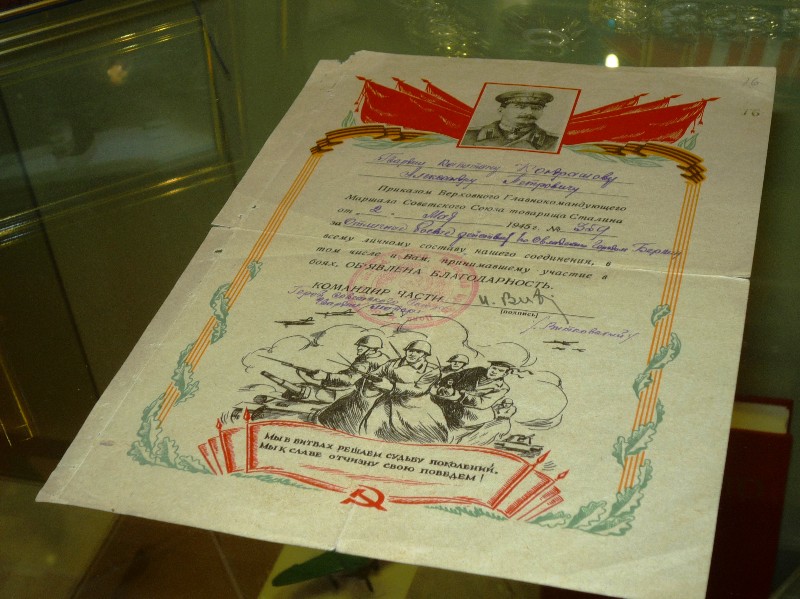 16
16
Гвардии Капитану Кондрашову
Александру Петровичу
Приказом Верховного Главнокомандующего
Маршала Советского Союза товарища Сталина
от „2" Мая 1945 г. № 359
за Отличные боевые действия по овладению городом Берлин
всему личному составу, нашего соединения, в
том числе и Вам, принимавшему участие в
боях, ОБЯВЛЕНА БЛАГОДАРНОСТЬ.
КОМАНДИР ЧАСТИ
(подпись)
Герой Советского Союза
Гвардии
МЫ В БИТВАХ РЕШАЕМ СУДЬБУ ПОКОЛЕНИЙ,
МЫ К СЛАВЕ ОТЧИЗНУ СВОЮ ПОВЕДЕМ!